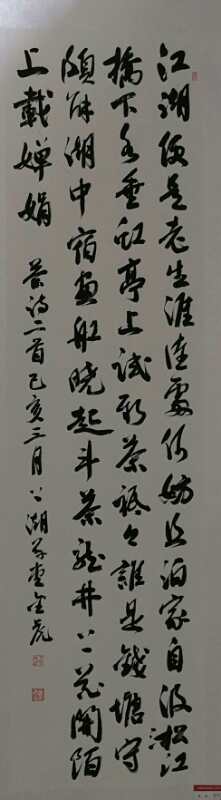 江湖便是老生涯佳處何妨且泊家自汲淞江
橋下水垂虹亭上試新茶祗今誰是錢塘守
頗解湖中宿畫船曉起斗茶龍井上花開陌
上載嬋娟 茶詩二首己亥三月 湖草堂金